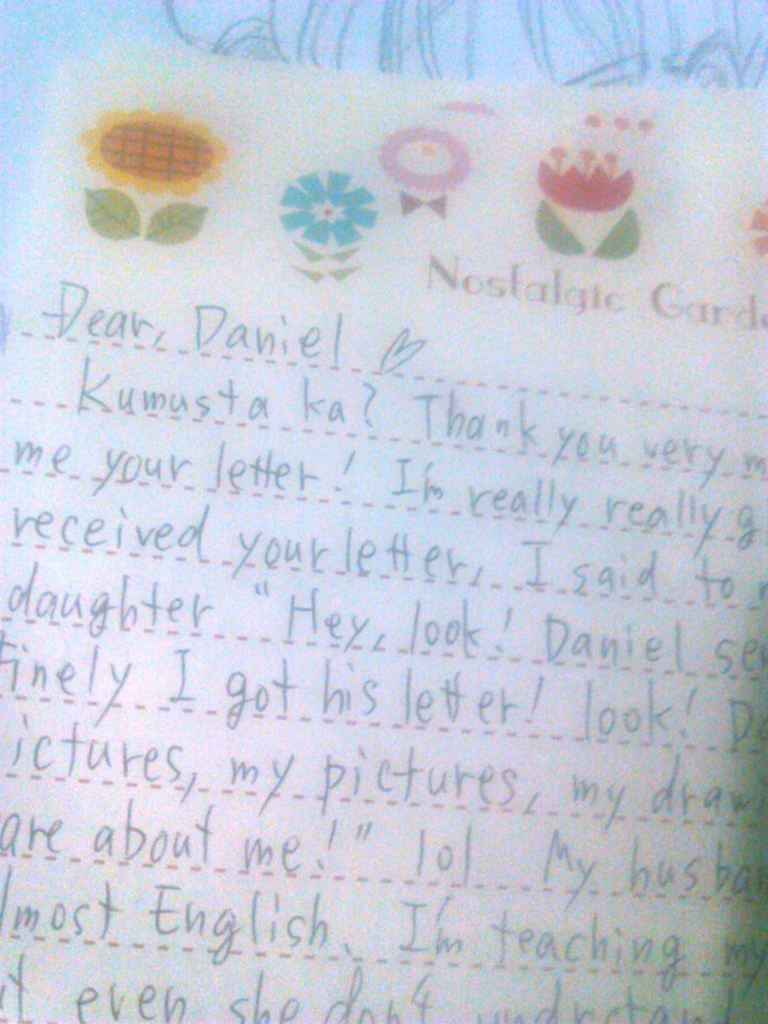 Nostalgic
Dear, Daniel
Kumusta ka? Thank you very
me your letter! I'm really really
received your letter, I said to
daughter "Hey, look! Daniel
Finely I got his letter! look!
my pictures, my
are about me!" lol My
English. I'm teaching my
even she don't